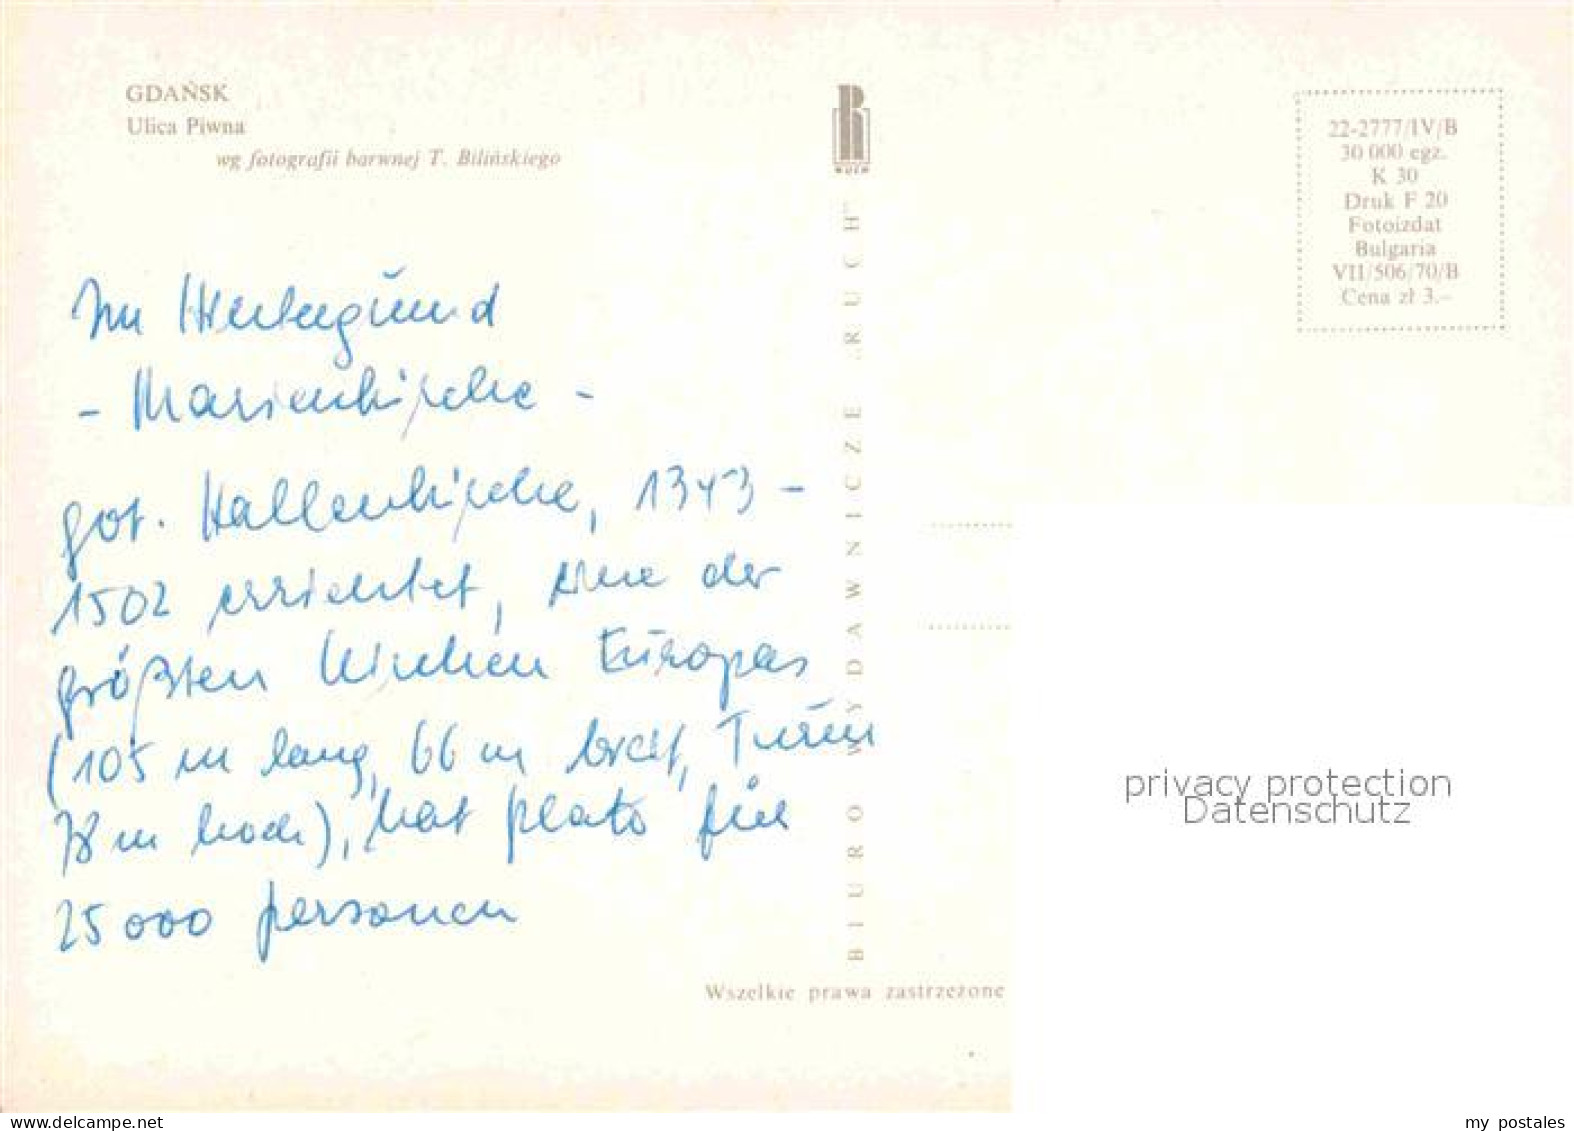 GDAŃSK
Ulica Piwna
wg fotografii barwnej T. Bilińskiego
RUCH
BIURO WYDAWNICZE „RUCH”
22-2777/IV/B
30 000 egz.
K 30
Druk F 20
Fotoizdat
Bulgaria
VII/506/70/B
Cena zł 3.–
Im Hintergrund
- Marienkirche -
got. Hallenkirche, 1343 -
1502 errichtet, eine der
größten Kirchen Europas
(105 m lang, 66 m breit, Turm
78 m hoch), hat platz für
25 000 personen
Wszelkie prawa zastrzeżone
privacy protection
Datenschutz
delcampe.net
my_postales